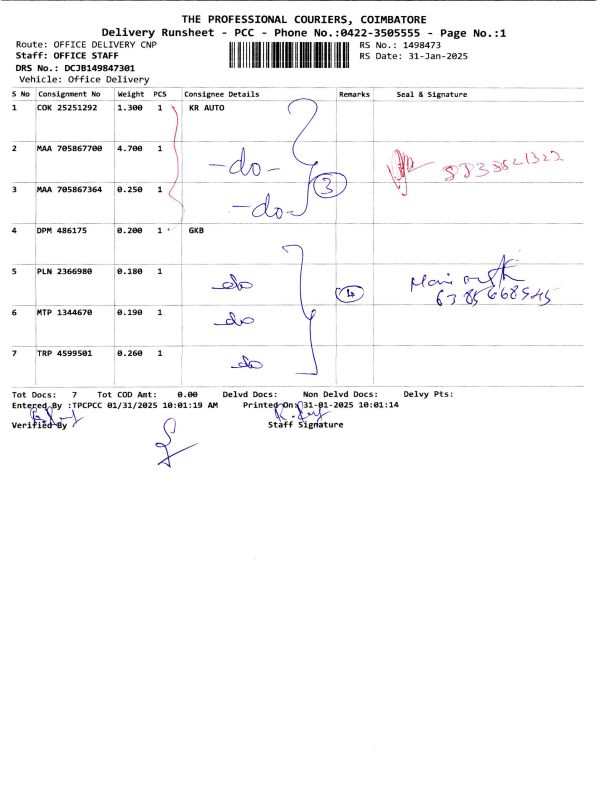 THE PROFESSIONAL COURIERS, COIMBATORE
Delivery Runsheet - PCC - Phone No.:0422-3505555 - Page No.:1
Route: OFFICE DELIVERY CNP
RS No.: 1498473
Staff: OFFICE STAFF
RS Date: 31-Jan-2025
DRS No.: DCJB149847301
Vehicle: Office Delivery
S No Consignment No Weight PCS Consignee Details Remarks Seal & Signature
1 COK 25251292 1.300 1 KR AUTO
2 MAA 705867700 4.700 1 -do-
3 MAA 705867364 0.250 1 -do-
3
4 DPM 486175 0.200 1 GKB
5 PLN 2366980 0.180 1 do
4
6 MTP 1344670 0.190 1 do
7 TRP 4599501 0.260 1 do
Tot Docs: 7 Tot COD Amt: 0.00 Delvd Docs: Non Delvd Docs: Delvy Pts:
Entered By :TPCPCC 01/31/2025 10:01:19 AM Printed On: 31-01-2025 10:01:14
Verified By Staff Signature